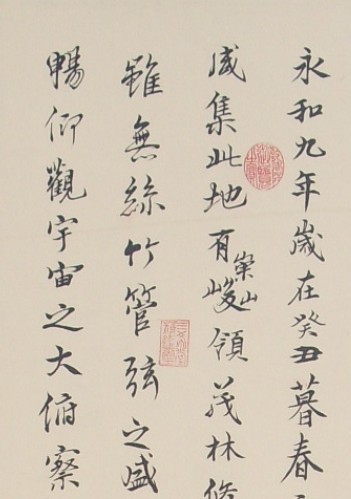 永和九年歲在癸丑暮春
咸集此地有崇山峻領茂林脩
雖無絲竹管弦之盛
暢仰觀宇宙之大俯察